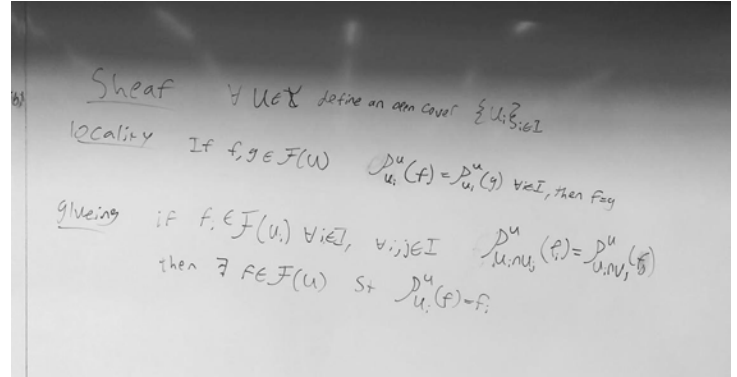 (b)
Sheaf ∀ U∈X define an open cover {Uᵢ}ᵢ∈I
locality If f,g ∈ ℱ(U) ρ^U_{Uᵢ}(f) = ρ^U_{Uᵢ}(g) ∀i∈I, then f=g
glueing if fᵢ ∈ ℱ(Uᵢ) ∀i∈I, ∀i,j∈I ρ^U_{Uᵢ∩Uⱼ}(fᵢ) = ρ^U_{Uᵢ∩Uⱼ}(fⱼ)
then ∃ f∈ℱ(U) st ρ^U_{Uᵢ}(f)=fᵢ